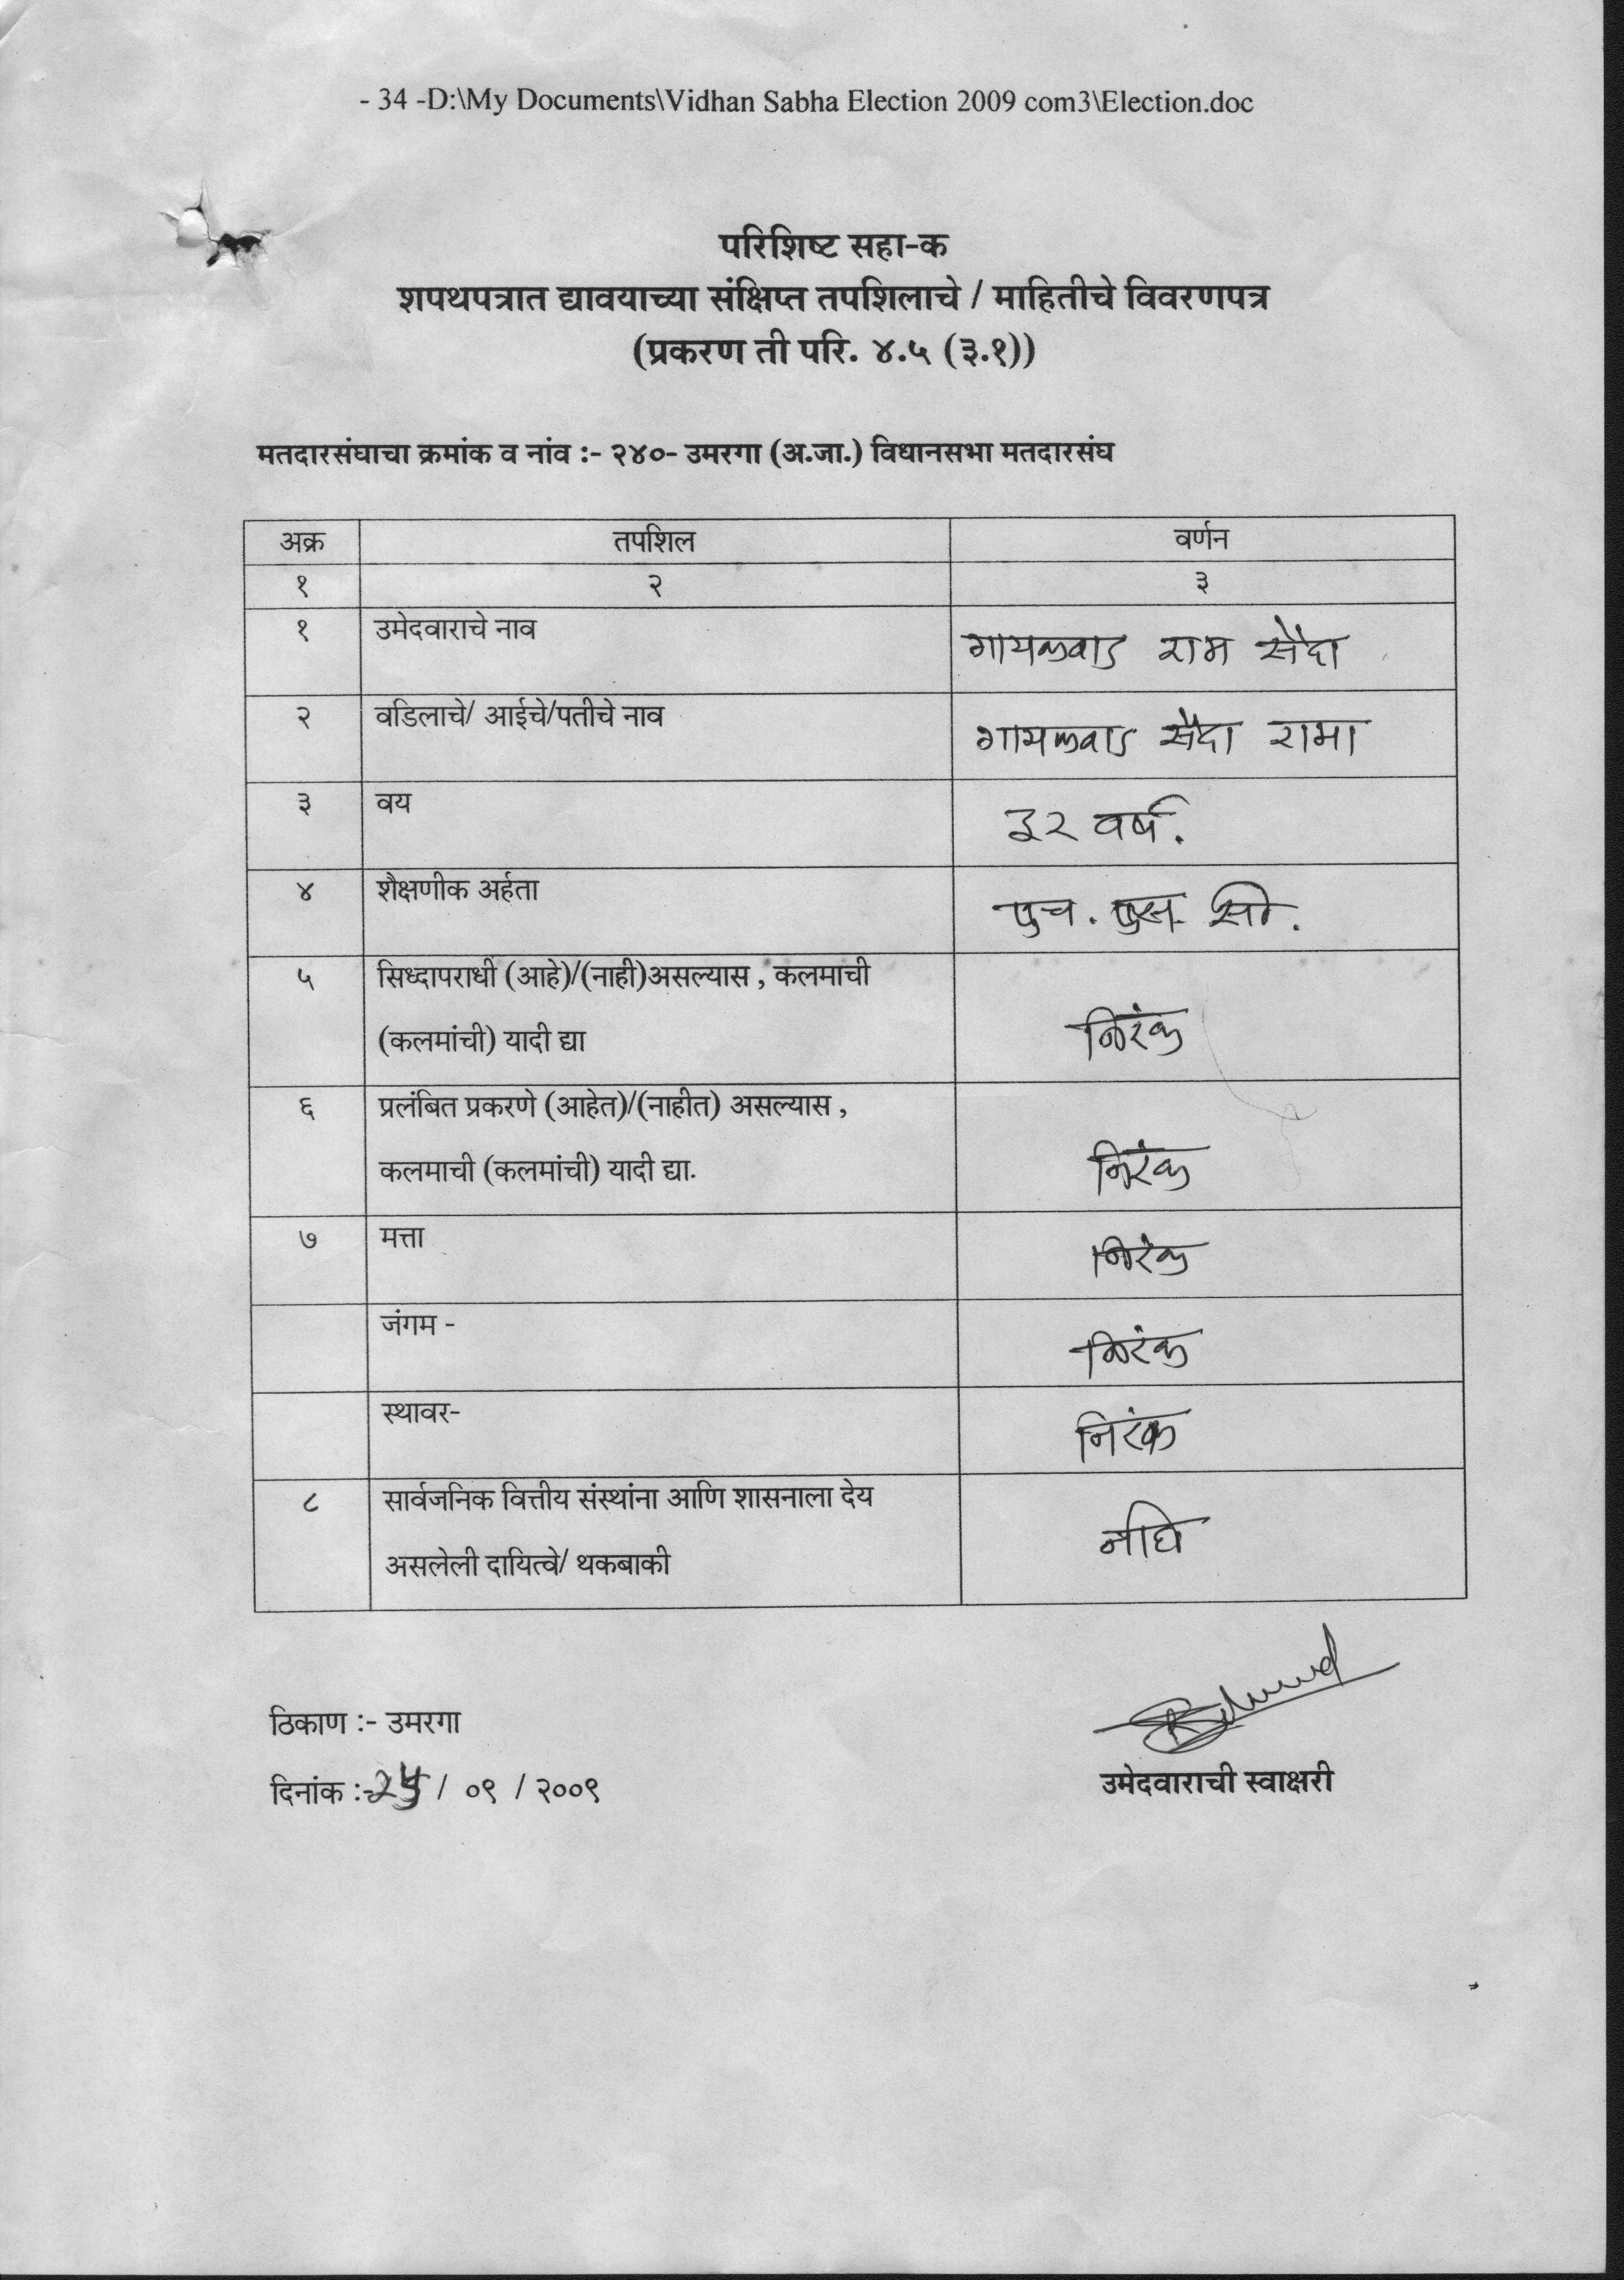 - 34 -D:\My Documents\Vidhan Sabha Election 2009 com3\Election.doc
परिशिष्ट सहा-क
शपथपत्रात द्यावयाच्या संक्षिप्त तपशिलाचे / माहितीचे विवरणपत्र
(प्रकरण ती परि. ४.५ (३.१))
मतदारसंघाचा क्रमांक व नांव :- २४०- उमरगा (अ.जा.) विधानसभा मतदारसंघ
अक्र तपशिल वर्णन
१ २ ३
१ उमेदवाराचे नाव गायकवाड राम सैदा
२ वडिलाचे/ आईचे/पतीचे नाव गायकवाड सैदा रामा
३ वय ३२ वर्ष.
४ शैक्षणीक अर्हता एच. एस. सी.
५ सिध्दापराधी (आहे)/(नाही)असल्यास , कलमाची
(कलमांची) यादी द्या निरंक
६ प्रलंबित प्रकरणे (आहेत)/(नाहीत) असल्यास ,
कलमाची (कलमांची) यादी द्या. निरंक
७ मत्ता निरंक
जंगम - निरंक
स्थावर- निरंक
८ सार्वजनिक वित्तीय संस्थांना आणि शासनाला देय
असलेली दायित्वे/ थकबाकी
ठिकाण :- उमरगा
दिनांक :-२५ / ०९ / २००९
उमेदवाराची स्वाक्षरी